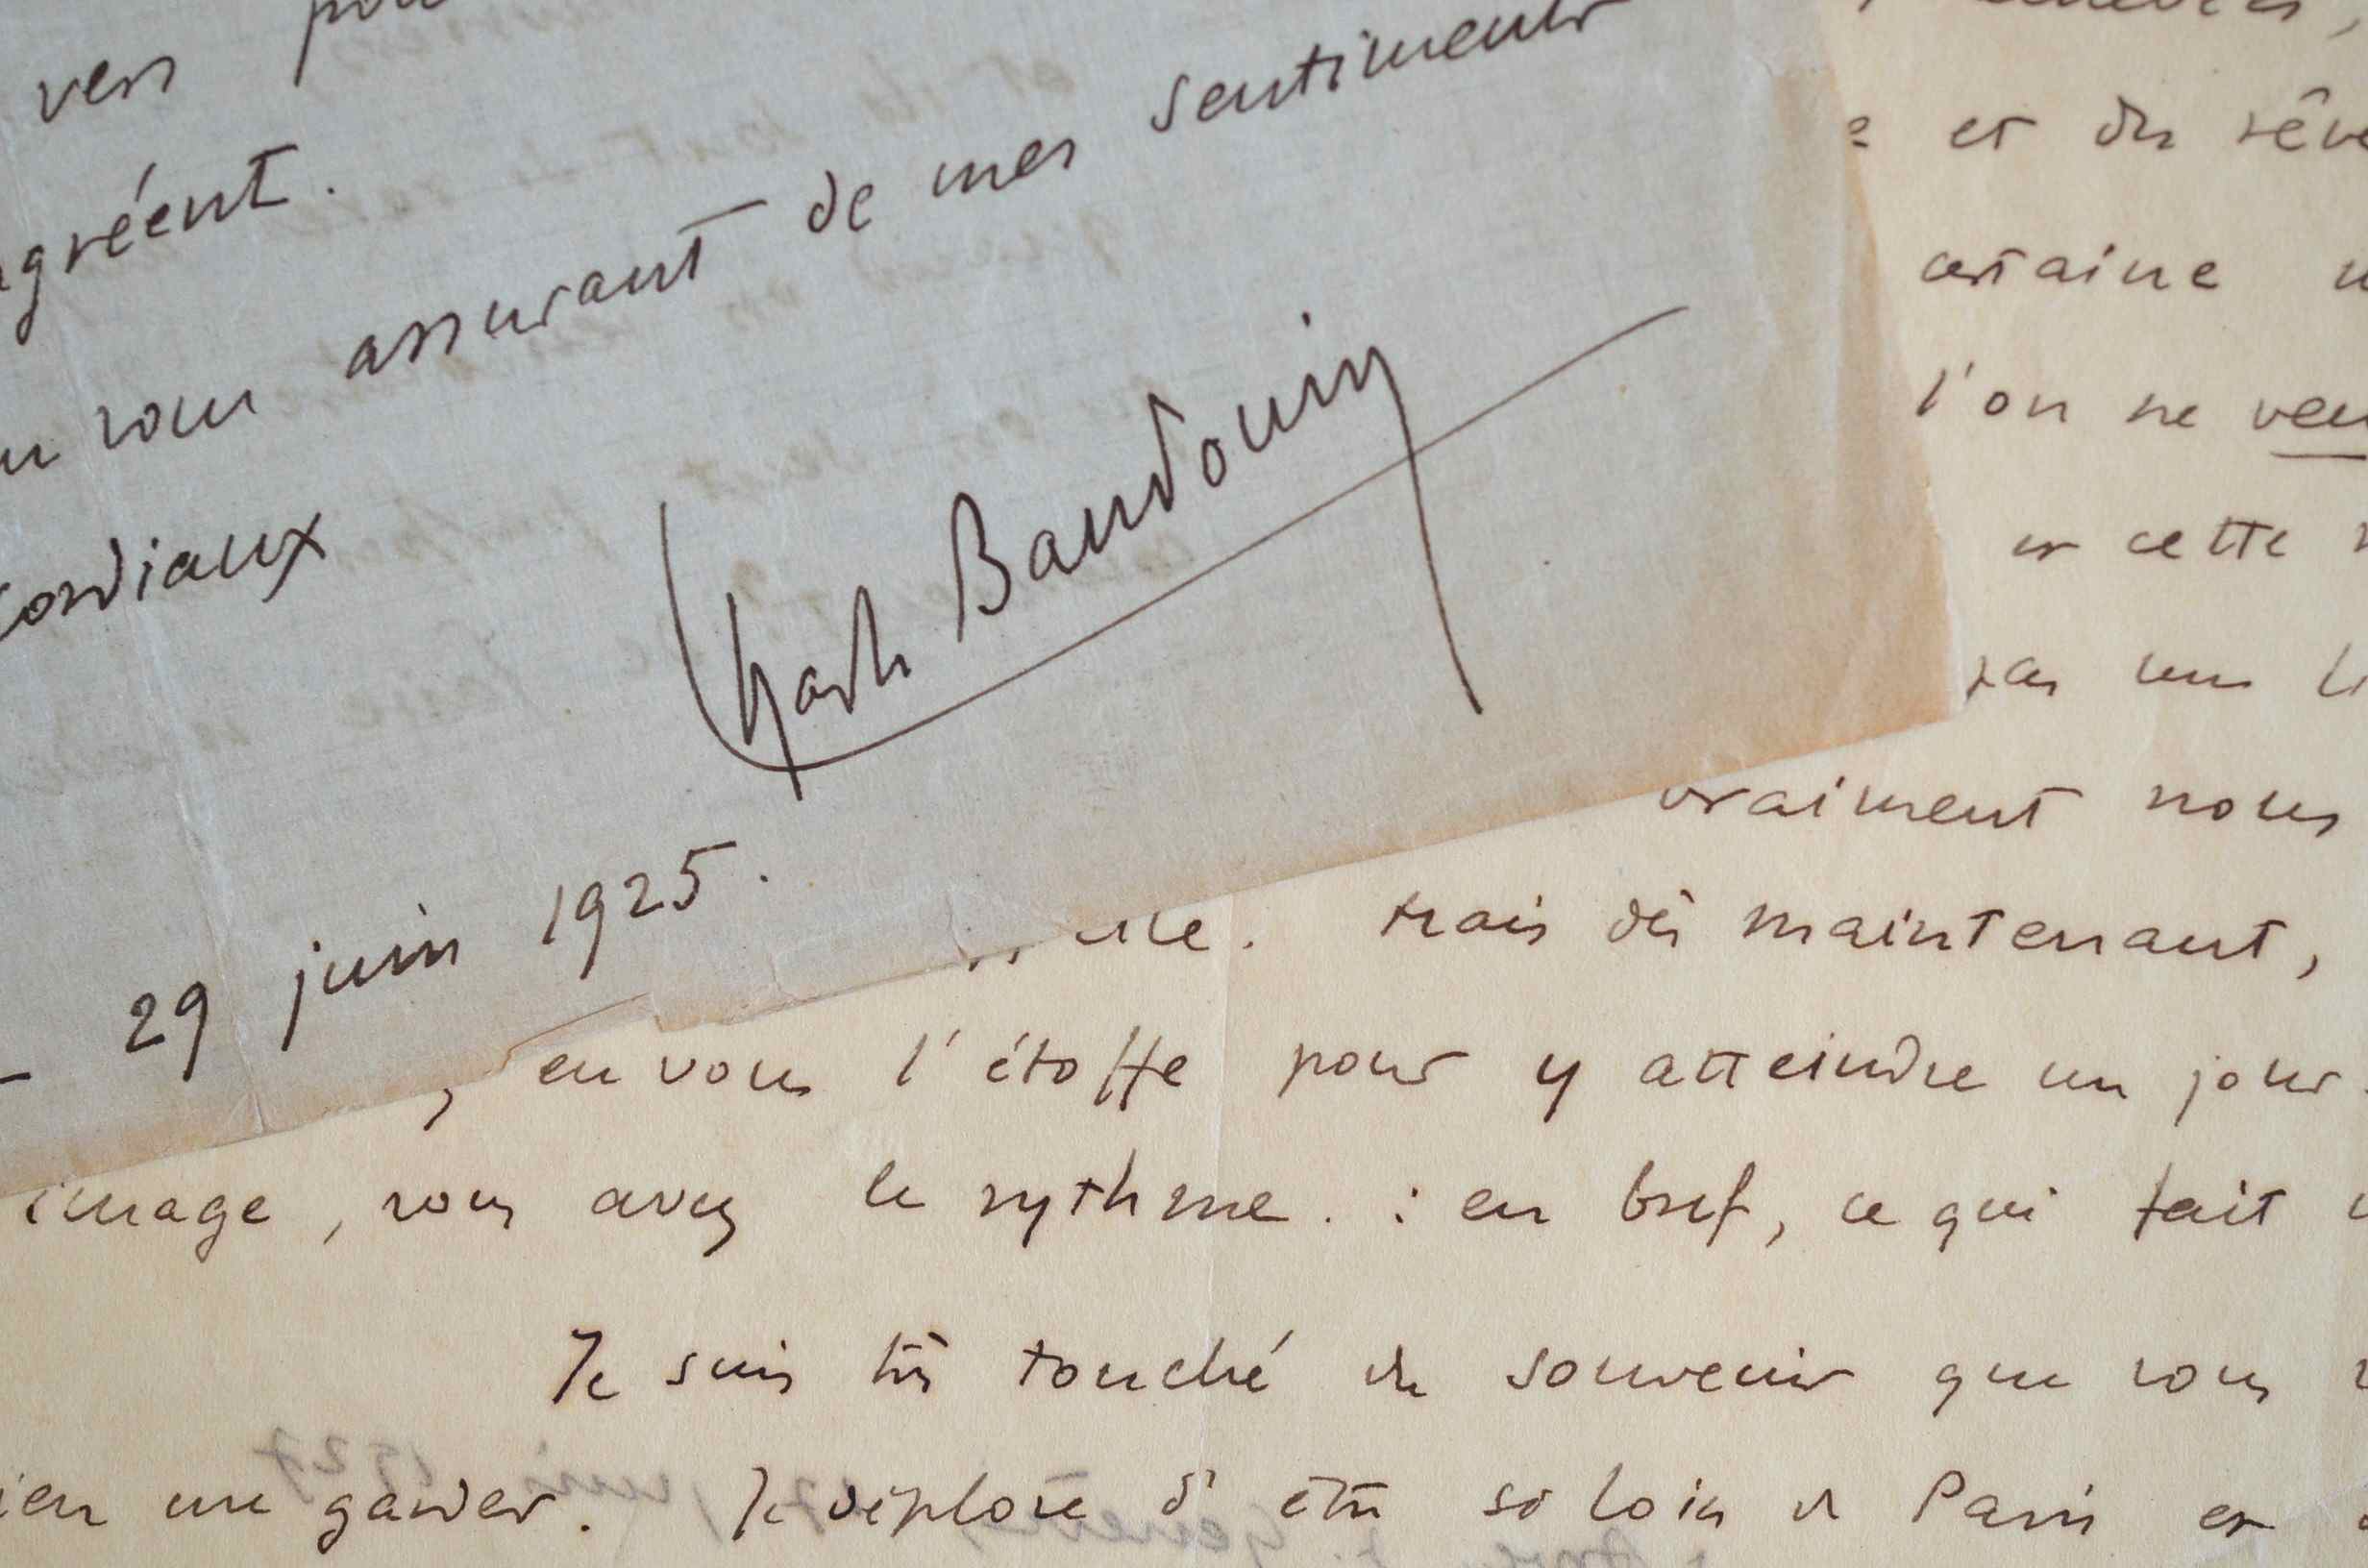 vers
agréent.
vous assurant de mes sentiments
cordiaux
Charles Baudouin
29 juin 1925.
et du rêve
certaine
l'on ne veu
et cette
pas un li
vraiment nous
mais dès maintenant,
en vous l'étoffe pour y atteindre un jour.
image, vous avez le rythme. : en bref, ce qui fait
Je suis très touché du souvenir que vous
ien me garder. Je déplore d'être si loin de Paris et